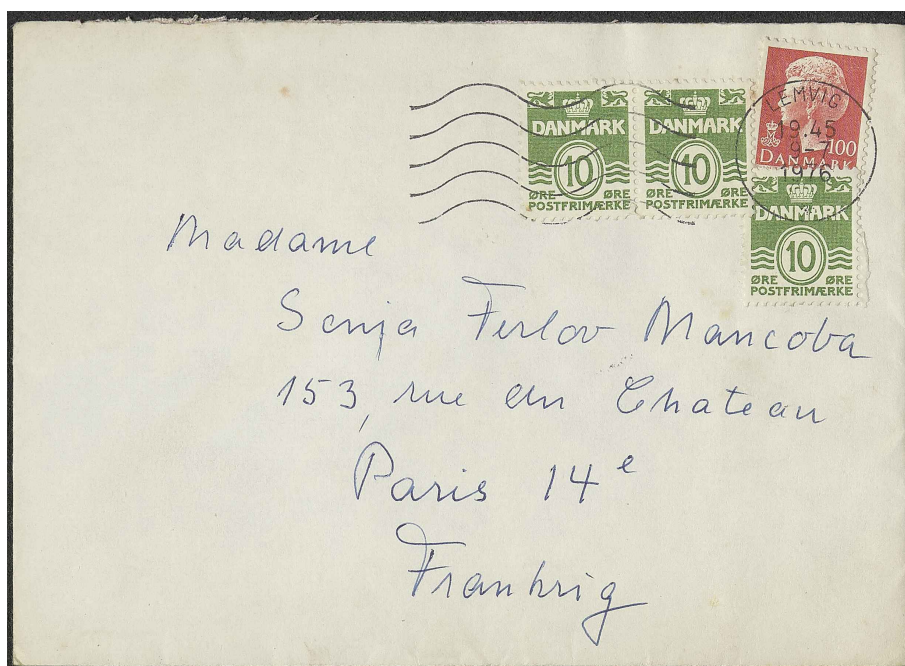 DANMARK
10
ØRE ØRE
POSTFRIMÆRKE
DANMARK
10
ØRE ØRE
POSTFRIMÆRKE
LEMVIG
19.45
9-7
1976
100
DANMARK
DANMARK
10
ØRE ØRE
POSTFRIMÆRKE
Madame
Sonja Ferlov Mancoba
153, rue du Chateau
Paris 14e
Frankrig